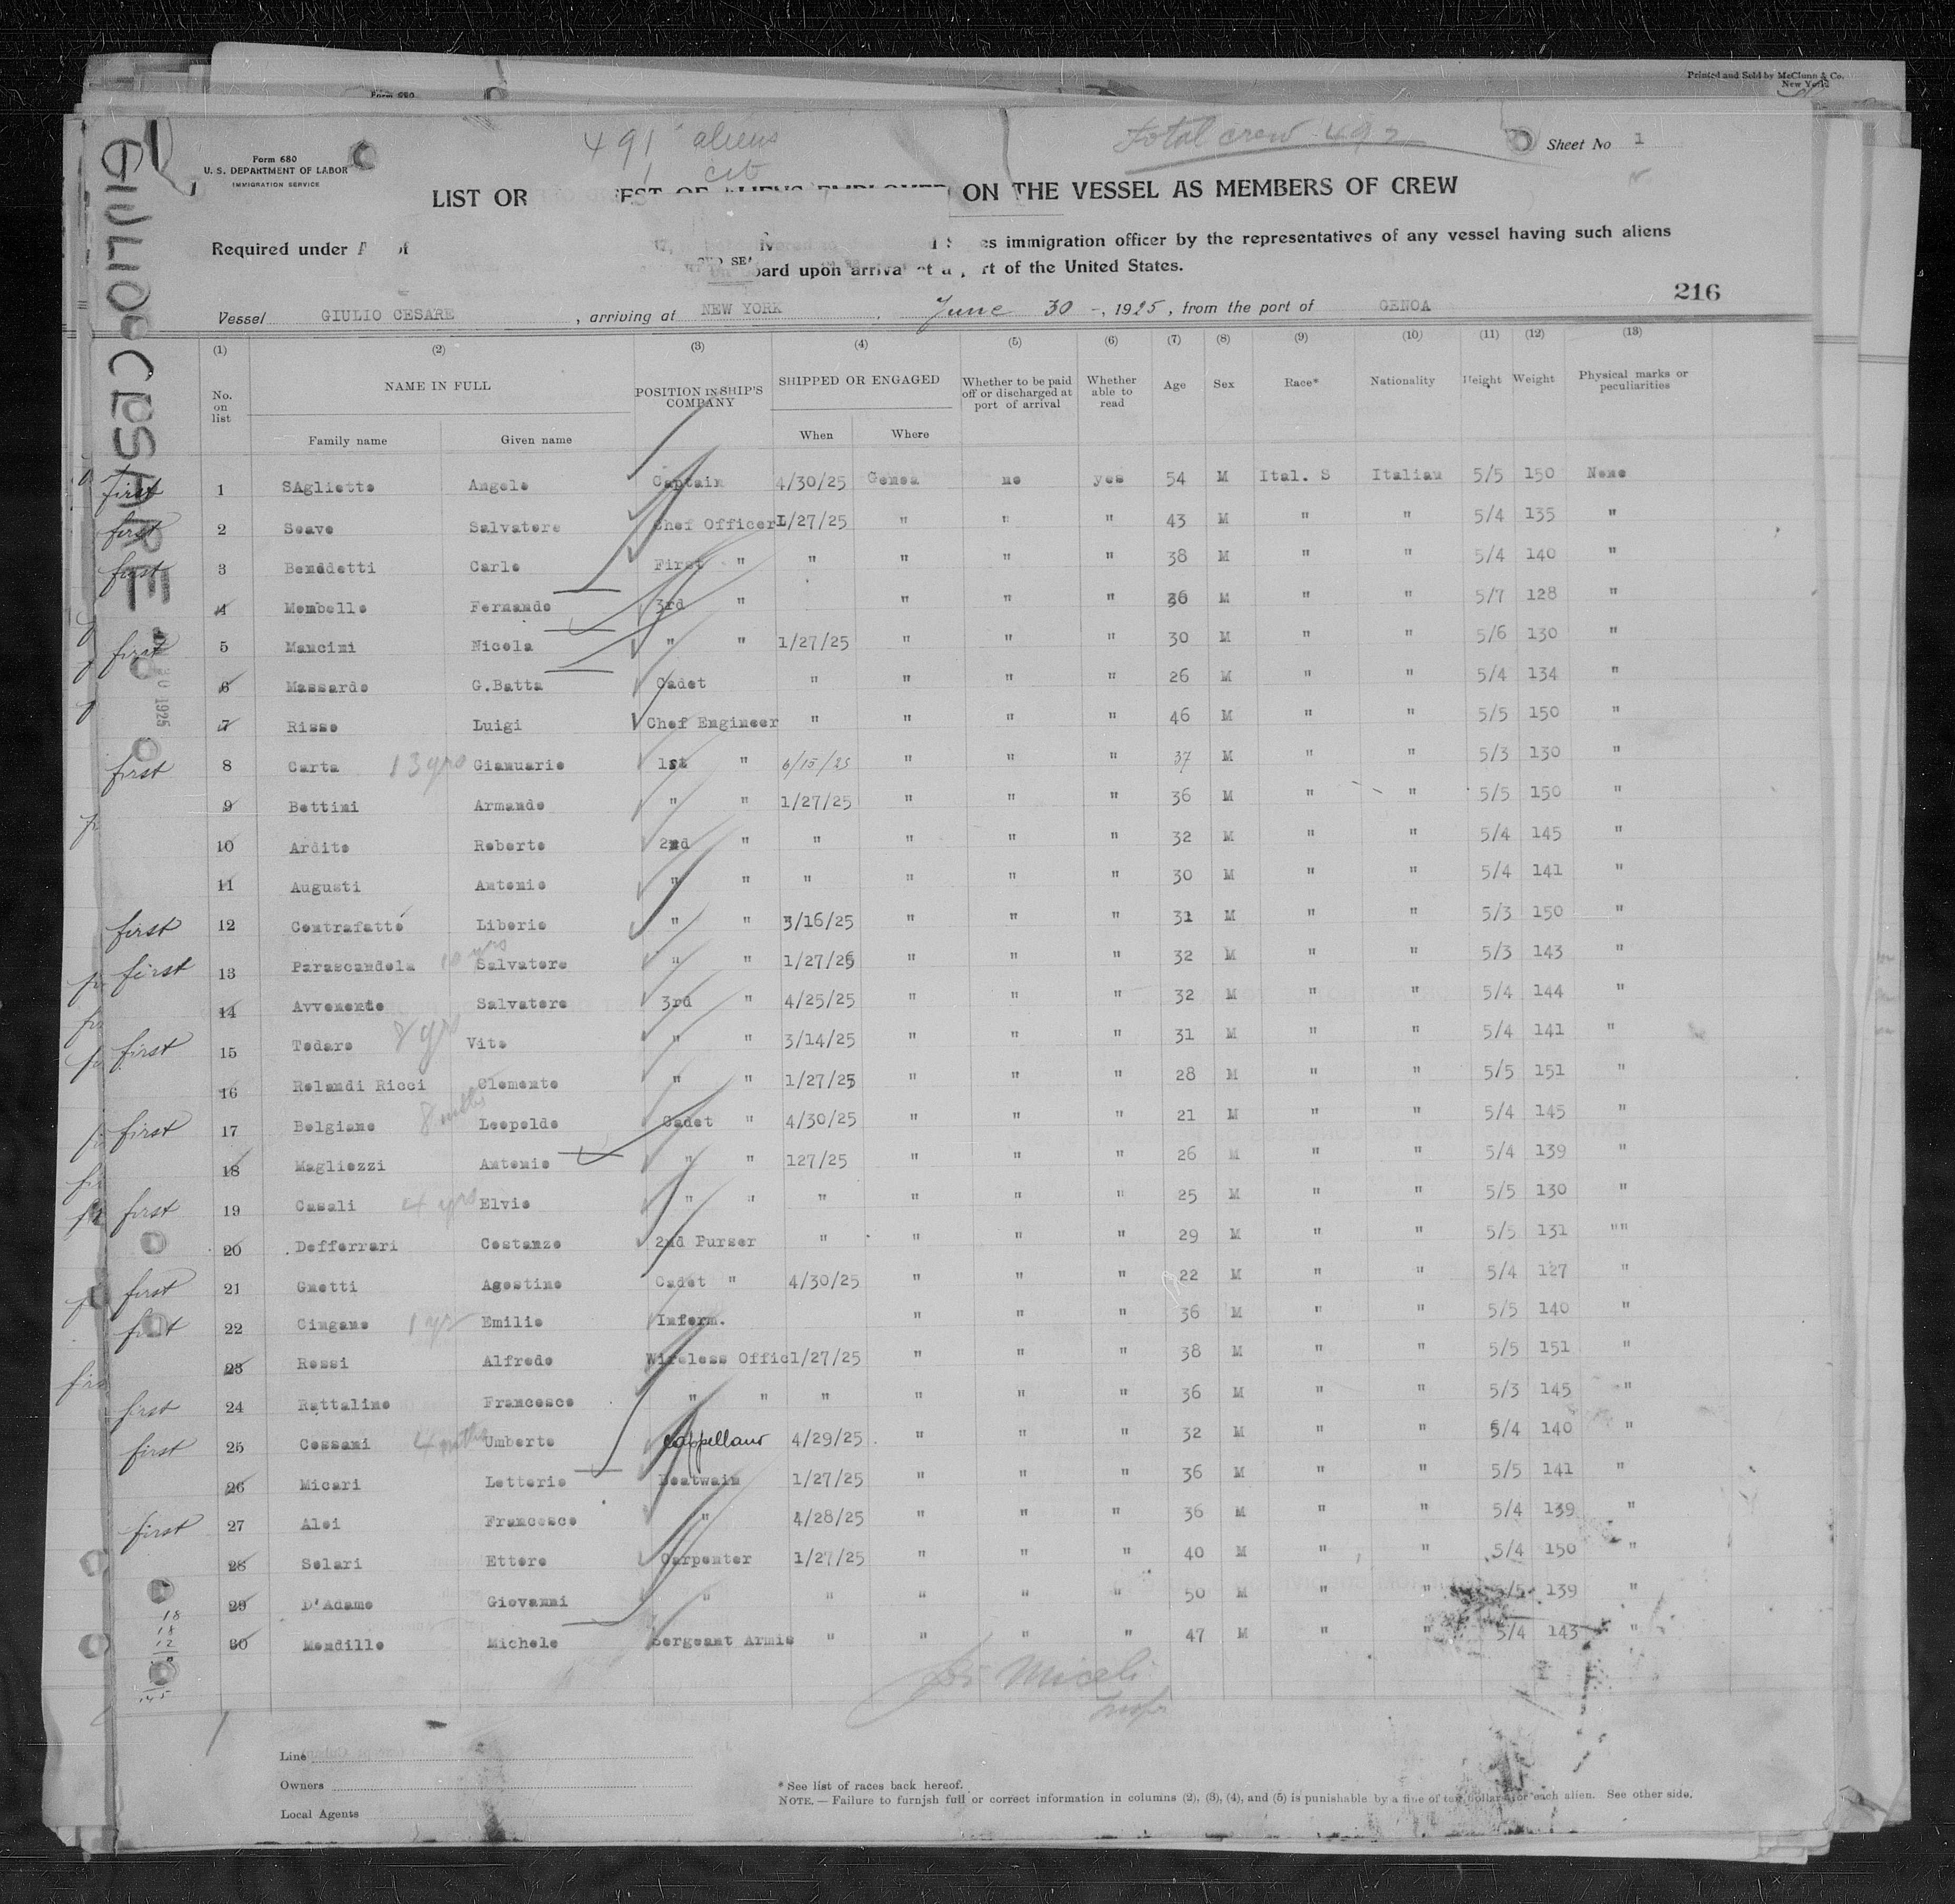 Printed and Sold by McClunn & Co.
New York
Form 680
491 aliens
1 cit
Total crew 492
Sheet No 1
Form 680
U. S. DEPARTMENT OF LABOR
IMMIGRATION SERVICE
LIST OR ON THE VESSEL AS MEMBERS OF CREW
Required under immigration officer by the representatives of any vessel having such aliens
upon arrival of the United States.
216
Vessel GIULIO CESARE, arriving at NEW YORK, June 30 -, 1925, from the port of GENOA
GIULIO CESARE
30 1925
(1) (2) (3) (4) (5) (6) (7) (8) (9) (10) (11) (12) (13)
No. on list NAME IN FULL POSITION IN SHIP'S COMPANY SHIPPED OR ENGAGED Whether to be paid off or discharged at port of arrival Whether able to read Age Sex Race* Nationality Height Weight Physical marks or peculiarities
Family name Given name When Where
first 1 SAgliette Angelo Captain 4/30/25 Genoa no yes 54 M Ital. S Italian 5/5 150 None
first 2 Seave Salvatore Chef Officer 1/27/25 " " " 43 M " " 5/4 135 "
first 3 Benedetti Carlo First " " " " " 38 M " " 5/4 140 "
4 Mombello Fernando 3rd " " " " 36 M " " 5/7 128 "
first 5 Mancini Nicola " " 1/27/25 " " " 30 M " " 5/6 130 "
6 Massardo G.Batta Cadet " " " " 26 M " " 5/4 134 "
7 Risso Luigi Chef Engineer " " " " 46 M " " 5/5 150 "
first 8 Carta 13 yrs Gianuario 1st " 6/15/25 " " " 37 M " " 5/3 130 "
9 Bettini Armando " " 1/27/25 " " " 36 M " " 5/5 150 "
10 Ardito Roberto 2nd " " " " " 32 M " " 5/4 145 "
11 Augusti Antonio " " " " " " 30 M " " 5/4 141 "
first 12 Contrafatto Liborio " " 3/16/25 " " " 31 M " " 5/3 150 "
first 13 Parascandola 10 yrs Salvatore " " 1/27/25 " " " 32 M " " 5/3 143 "
14 Avvenente Salvatore 3rd " 4/25/25 " " " 32 M " " 5/4 144 "
first 15 Todaro 8 yrs Vito " " 3/14/25 " " " 31 M " " 5/4 141 "
16 Rolandi Ricci Clemente " " 1/27/25 " " " 28 M " " 5/5 151 "
first 17 Belgiano 8 mths Leopoldo Cadet " 4/30/25 " " " 21 M " " 5/4 145 "
18 Magliozzi Antonio " " 127/25 " " " 26 M " " 5/4 139 "
first 19 Casali 4 yrs Elvio " " " " " " 25 M " " 5/5 130 "
20 Defferrari Costanzo 2nd Purser " " " " 29 M " " 5/5 131 ""
first 21 Gnetti Agostino Cadet " 4/30/25 " " " 22 M " " 5/4 127 "
first 22 Cingano 1 yr Emilio Inferm. " " " 36 M " " 5/5 140 "
23 Rossi Alfredo Wireless Offic 1/27/25 " " " 38 M " " 5/5 151 "
first 24 Rattalino Francesco " " " " " " 36 M " " 5/3 145 "
first 25 Cossani 4 mths Umberto Cappellano 4/29/25 " " " 32 M " " 5/4 140 "
26 Micari Letterio Boatwain 1/27/25 " " " 36 M " " 5/5 141 "
first 27 Aloi Francesco " 4/28/25 " " " 36 M " " 5/4 139 "
28 Solari Ettore Carpenter 1/27/25 " " " 40 M " " 5/4 150 "
29 D'Adamo Giovanni " " " " " 50 M " " 5/5 139 "
30 Mondillo Michele Sergeant Armis " " " " 47 M " " 5/4 143 "
18
18
12
Miceli
Insp
Line
Owners
Local Agents
* See list of races back hereof.
NOTE. — Failure to furnish full or correct information in columns (2), (3), (4), and (5) is punishable by a fine of ten dollars for each alien. See other side.